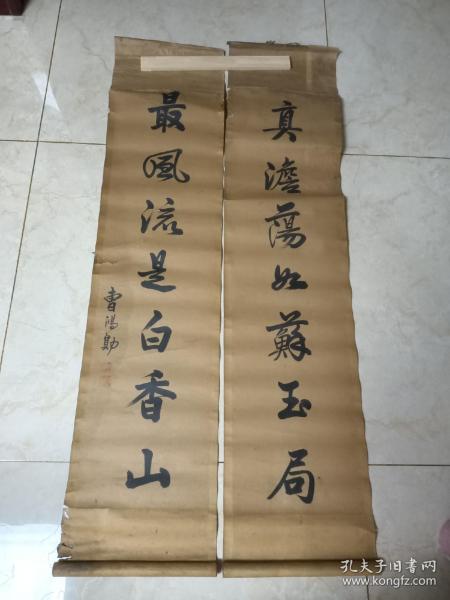 真澹蕩如蘇玉局
最風流是白香山
曹鴻勛
孔夫子旧书网
www.kongfz.com